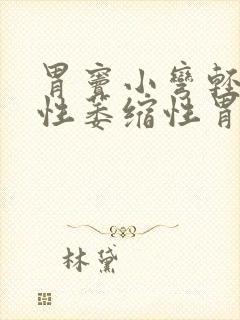 胃窦小弯轻
性萎缩性胃
林黛